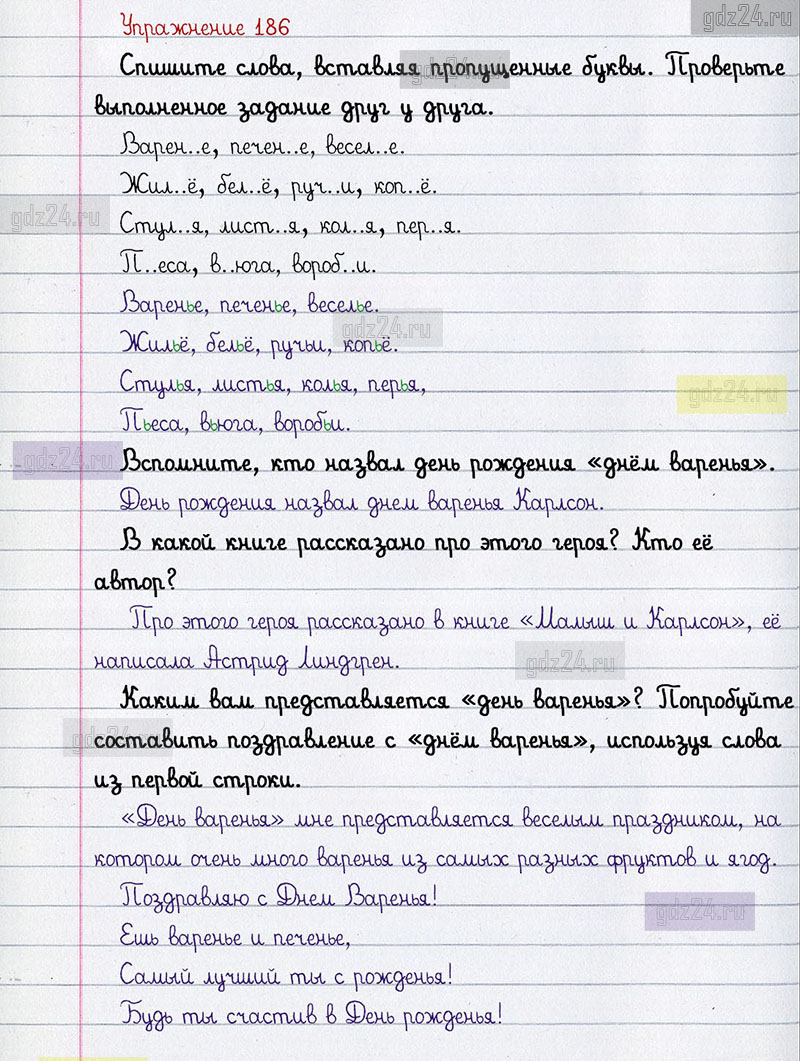 gdz24.ru
Упражнение 186
gdz24.ru
Спишите слова, вставляя пропущенные буквы. Проверьте
выполненное задание друг у друга.
Варен..е, печен..е, весел..е.
Жил..ё, бел..ё, руч..и, коп..ё.
gdz24.ru
Стул..я, лист..я, кол..я, пер..я.
П..еса, в..юга, вороб..и.
Варенье, печенье, веселье.
gdz24.ru
Жильё, бельё, ручьи, копьё.
Стулья, листья, колья, перья,
gdz24.ru
Пьеса, вьюга, воробьи.
gdz24.ru
Вспомните, кто назвал день рождения «днём варенья».
День рождения назвал днем варенья Карлсон.
В какой книге рассказано про этого героя? Кто её
автор?
Про этого героя рассказано в книге «Малыш и Карлсон», её
написала Астрид Линдгрен.
gdz24.ru
Каким вам представляется «день варенья»? Попробуйте
gdz24.ru
составить поздравление с «днём варенья», используя слова
из первой строки.
«День варенья» мне представляется веселым праздником, на
котором очень много варенья из самых разных фруктов и ягод.
Поздравляю с Днем Варенья!
gdz24.ru
Ешь варенье и печенье,
Самый лучший ты с рожденья!
Будь ты счастив в День рожденья!